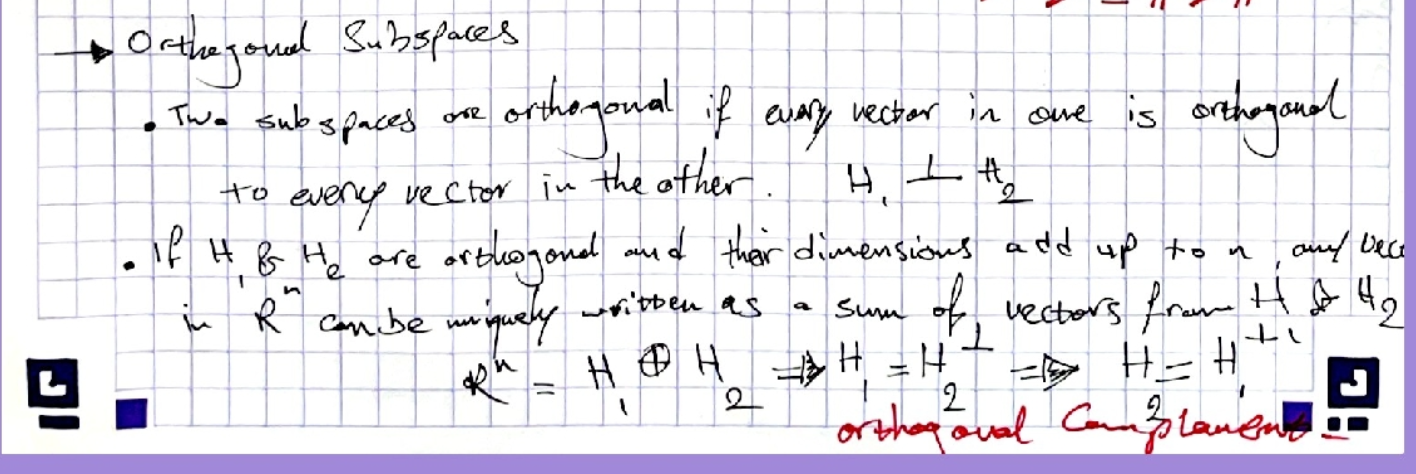 → Orthogonal Subspaces
• Two subspaces are orthogonal if every vector in one is orthogonal
to every vector in the other. H₁ ⊥ H₂
• If H₁ & H₂ are orthogonal and their dimensions add up to n, any vec
in Rⁿ can be uniquely written as a sum of vectors from H₁ & H₂
Rⁿ = H₁ ⊕ H₂ ⇒ H₁ = H₂^⊥ ⇒ H₂ = H₁^⊥
orthogonal Complement